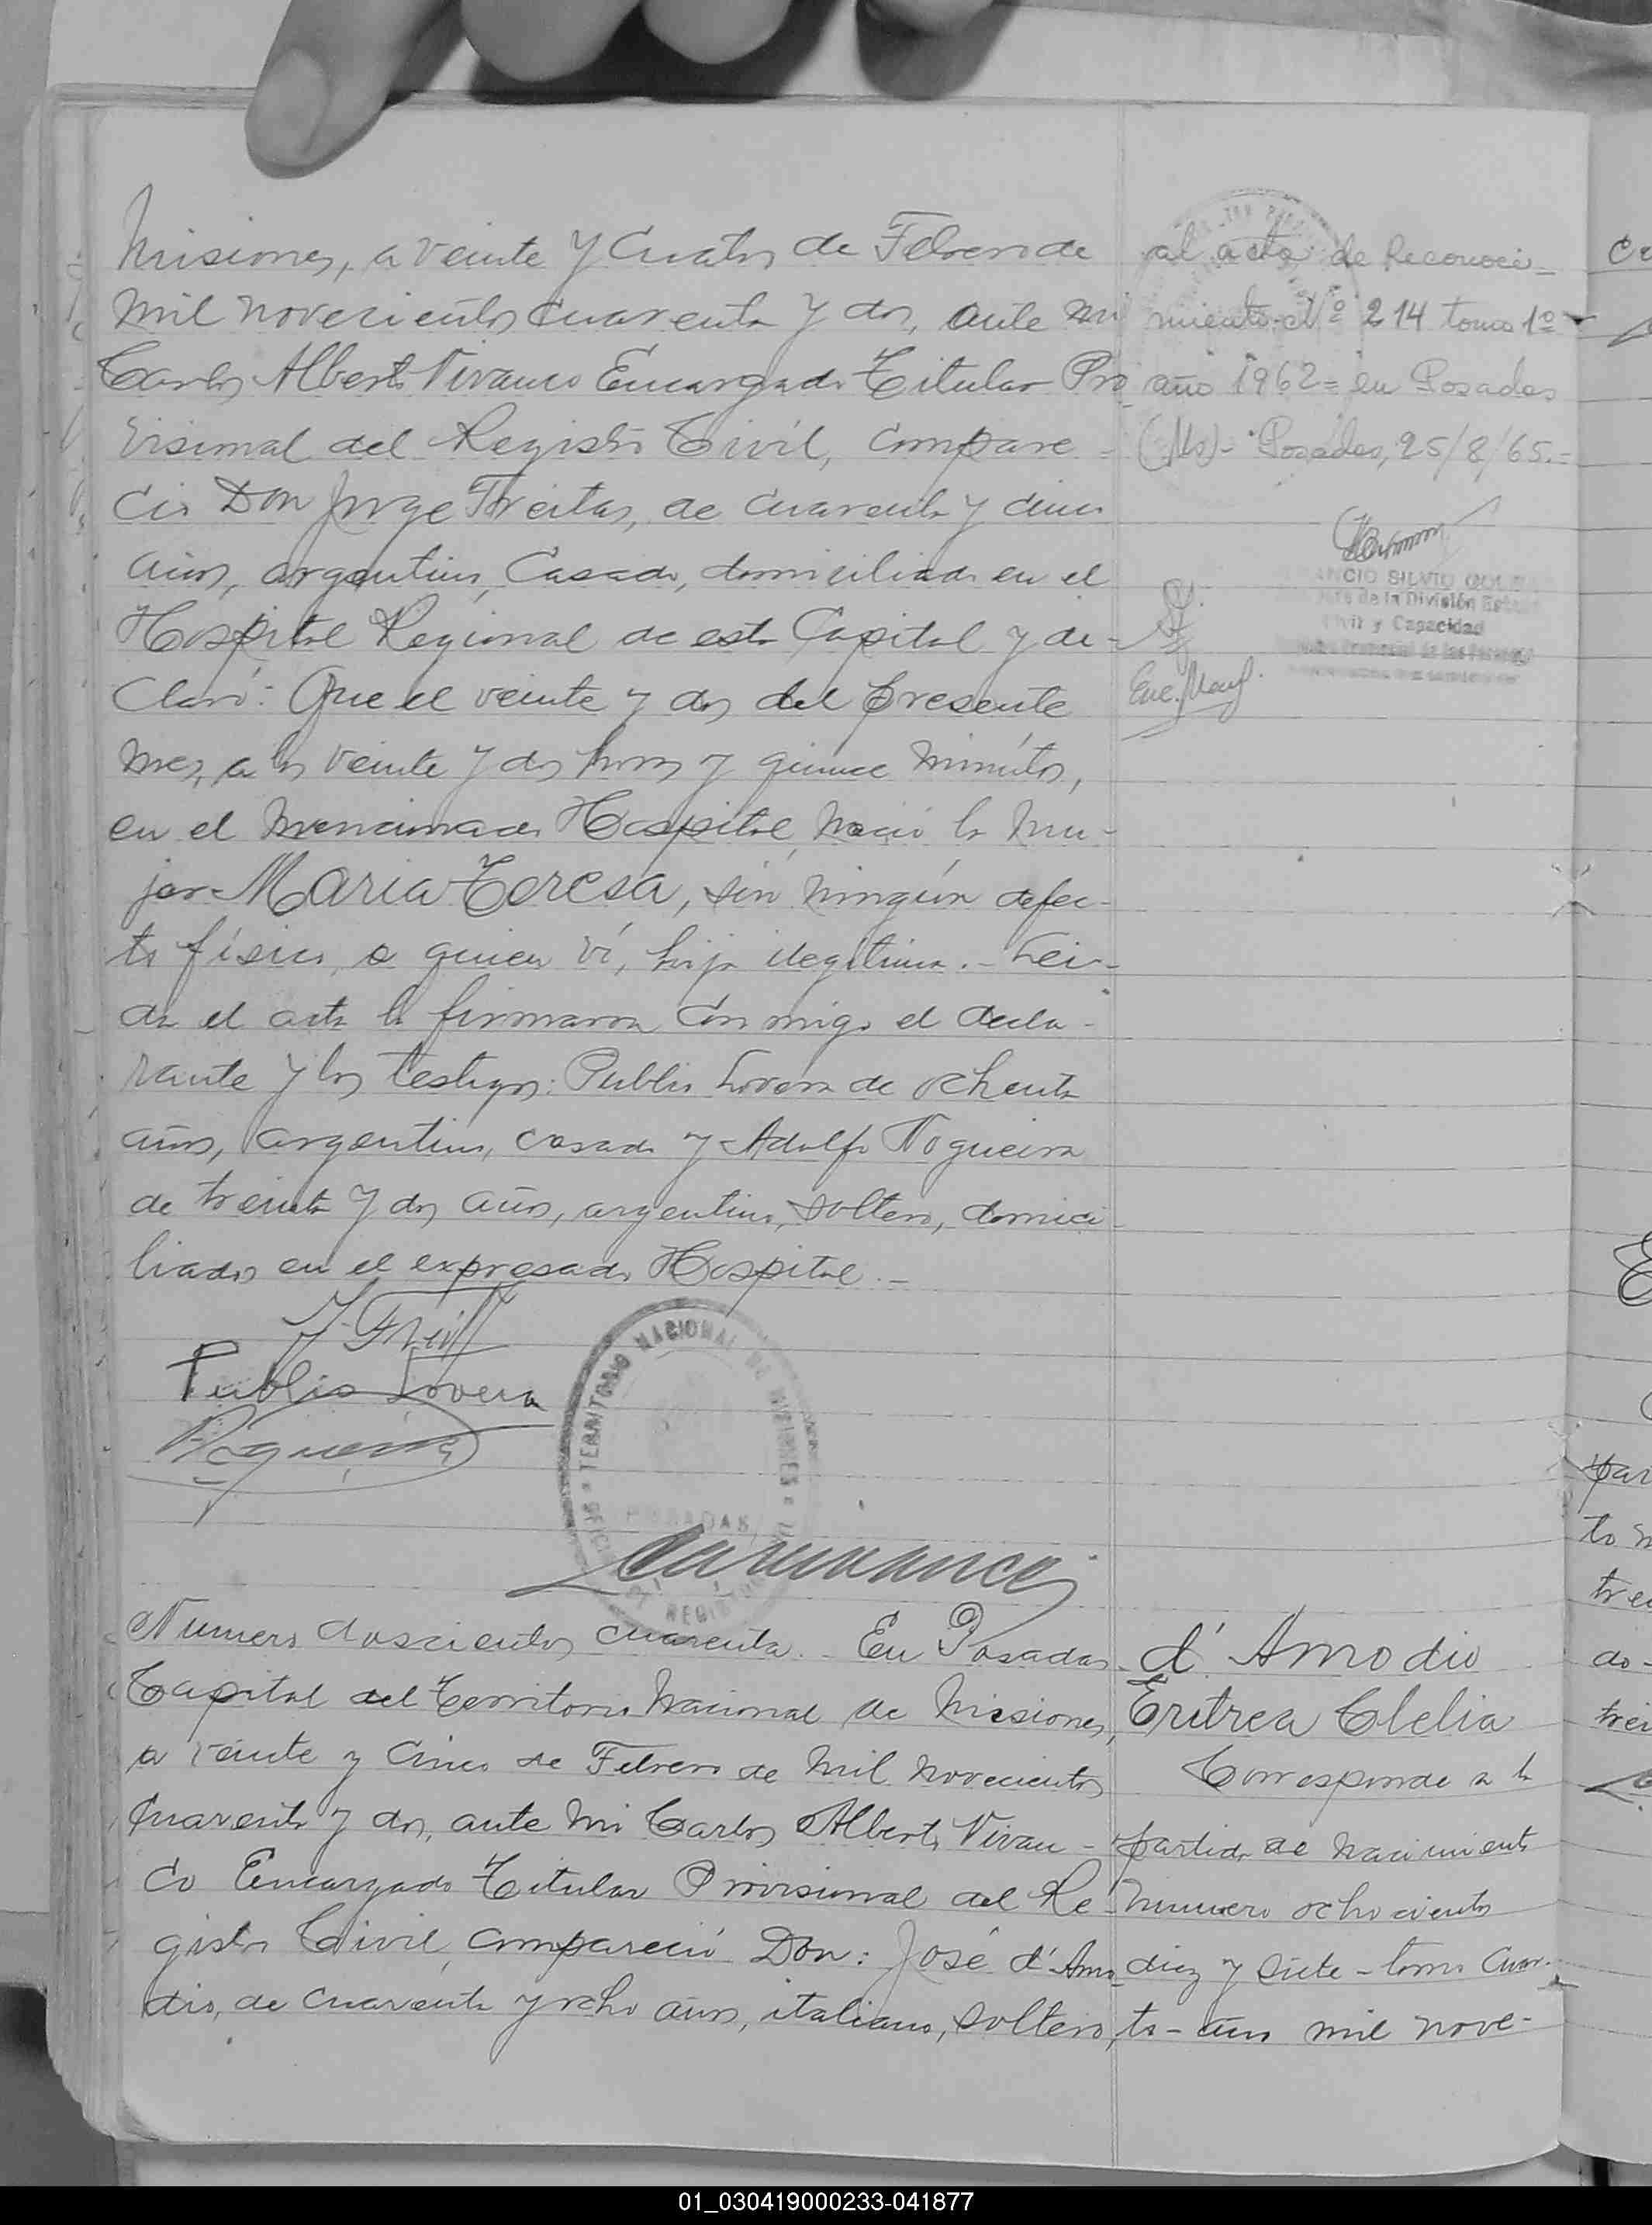 Misiones, a veinte y cuatro de Febrero de
mil novecientos cuarenta y dos, ante mi
Carlos Alberto Vivanco Encargado Titular Pro
visional del Registro Civil, compare-
ció Don Jorge Freitas, de cuarenta y cinco
años, argentino, casado, domiciliado en el
Hospital Regional de esta Capital y de-
claró: Que el veinte y dos del presente
mes, a las veinte y dos horas y quince minutos,
en el mencionado Hospital, nació la mu-
jer Maria Teresa, sin ningún defec-
to físico, a quien ví, hija ilegitima.- Lei-
da el acta la firmaron conmigo el decla-
rante y los testigos: Publio Lovera de ochenta
años, argentino, casado y Adolfo Nogueira
de treinta y dos años, argentino, soltero, domici-
liados en el expresado Hospital.-
Publio Lovera
TERRITORIO NACIONAL DE MISIONES
POSADAS
al acta de Reconoci-
miento Nº 214 tomo 1º
año 1962= en Posadas
(Ms)- Posadas, 25/8/65.=
de la División Estado
Civil y Capacidad
Numero doscientos cuarenta. En Posadas
Capital del Territorio Nacional de Misiones,
a veinte y cinco de Febrero de mil novecientos
cuarenta y dos, ante mi Carlos Alberto Vivan-
co Encargado Titular Provisional del Re-
gistro Civil, compareció Don: José d' Amo-
dio, de cuarenta y ocho años, italiano, soltero,
d' Amodio
Eritrea Clelia
Corresponde a la
partida de nacimiento
numero ochocientos
diez y siete - tomo cuar-
to - año mil nove-
01_030419000233-041877